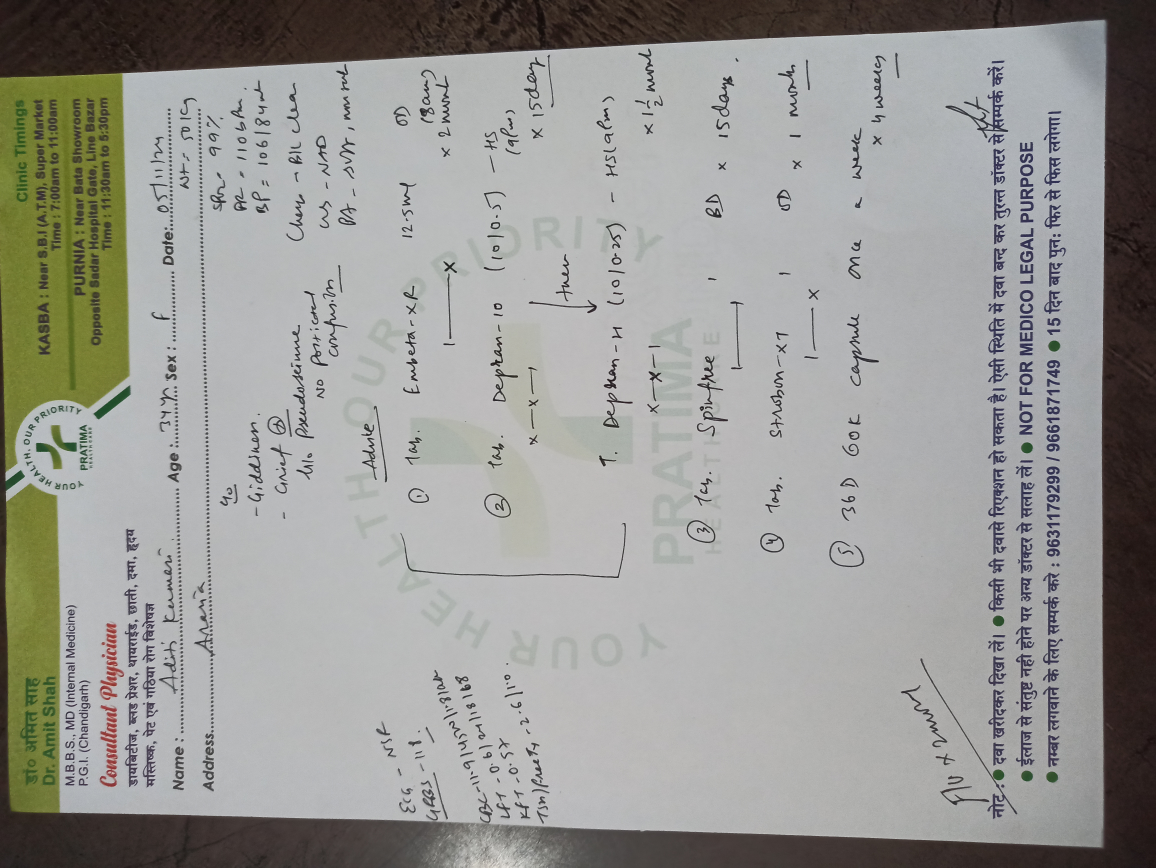 डॉ० अमित साह
Dr. Amit Shah
M.B.B.S., MD (Internal Medicine)
P.G.I. (Chandigarh)
Consultant Physician
डायबिटीज, ब्लड प्रेशर, थायराईड, छाती, दमा, हृदय
मस्तिष्क, पेट एवं गठिया रोग विशेषज्ञ
YOUR HEALTH, OUR PRIORITY
PRATIMA
HEALTHCARE
Clinic Timings
KASBA : Near S.B.I (A.T.M), Super Market
Time : 7:00am to 11:00am
PURNIA : Near Bata Showroom
Opposite Sadar Hospital Gate, Line Bazar
Time : 11:30am to 5:30pm
Name : Aditi Kumari Age : 34 yr Sex : F Date: 05/11/24
Address Araria Wt = 50 kg
SPO2 = 99%
PR = 110 b/m
BP = 106/84
Chest - B/L clear
CVS - NAD
PA - soft,
c/o
- Giddiness.
- Grief
H/o Pseudoseizure
No Postictal
confusion
Advice
① Tab. Embeta-XR 12.5 mg OD
1 —— X (8am)
x 2 month
② Tab. Depran-10 (10/0.5) - HS
X — X — 1 (9pm)
x 15 day
then
T. Depran-H (10/0.25) - HS (9pm)
X — X — 1 x 1½ month
③ Tab. Spinfree 1 BD x 15 days.
1 —— 1
④ Tab. 1 OD x 1 month
1 —— X
⑤ 36D 60K capsule once a week
x 4 weeks
ECG - NSR
GRBS - 118.
CBC - 11.9/
LFT - 0.6/24/18/68
KFT - 0.57
TSH/freeT4 - 2.6/1.0.
F/U x 2 month
YOUR HEALTH OUR PRIORITY
PRATIMA
HEALTHCARE
नोट : ● दवा खरीदकर दिखा लें। ● किसी भी दवासे रिएक्शन हो सकता है। ऐसी स्थिति में दवा बन्द कर तुरन्त डॉक्टर से सम्पर्क करें।
● ईलाज से संतुष्ट नही होने पर अन्य डॉक्टर से सलाह लें। ● NOT FOR MEDICO LEGAL PURPOSE
● नम्बर लगवाने के लिए सम्पर्क करे : 9631179299 / 9661871749 ● 15 दिन बाद पुन: फिर से फिस लगेगा।